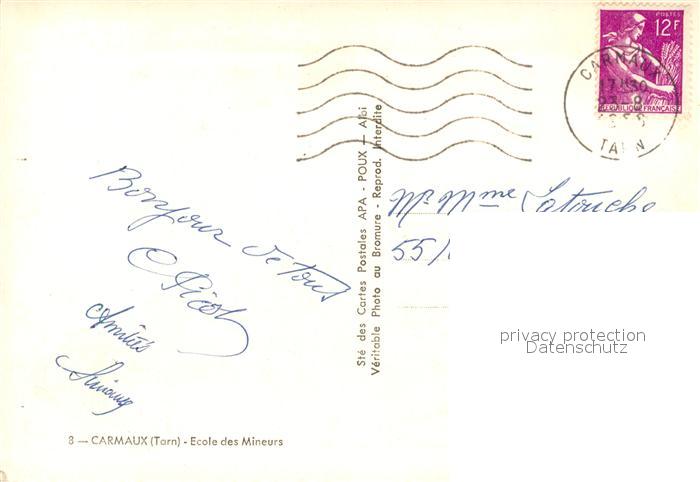 POSTES
12F
REPUBLIQUE FRANÇAISE
CARMAUX
17H30
TARN
Bonjour de tous
Amitiés
Mr Mme Latouche
55
Sté des Cartes Postales APA - POUX - Albi
Véritable Photo au Bromure - Reprod. Interdite
privacy protection
Datenschutz
8 — CARMAUX (Tarn) - Ecole des Mineurs